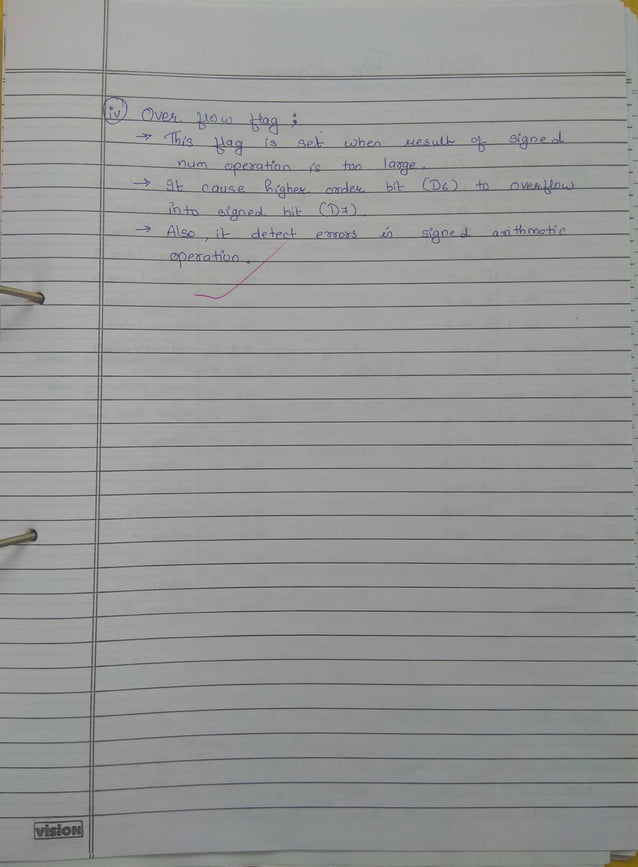 iv) Over flow flag ;
→ This flag is set when result of signed
num operation is too large.
→ It cause higher order bit (D6) to overflow
into signed bit (D7).
→ Also, it detect errors in signed arithmetic
operation.
vision